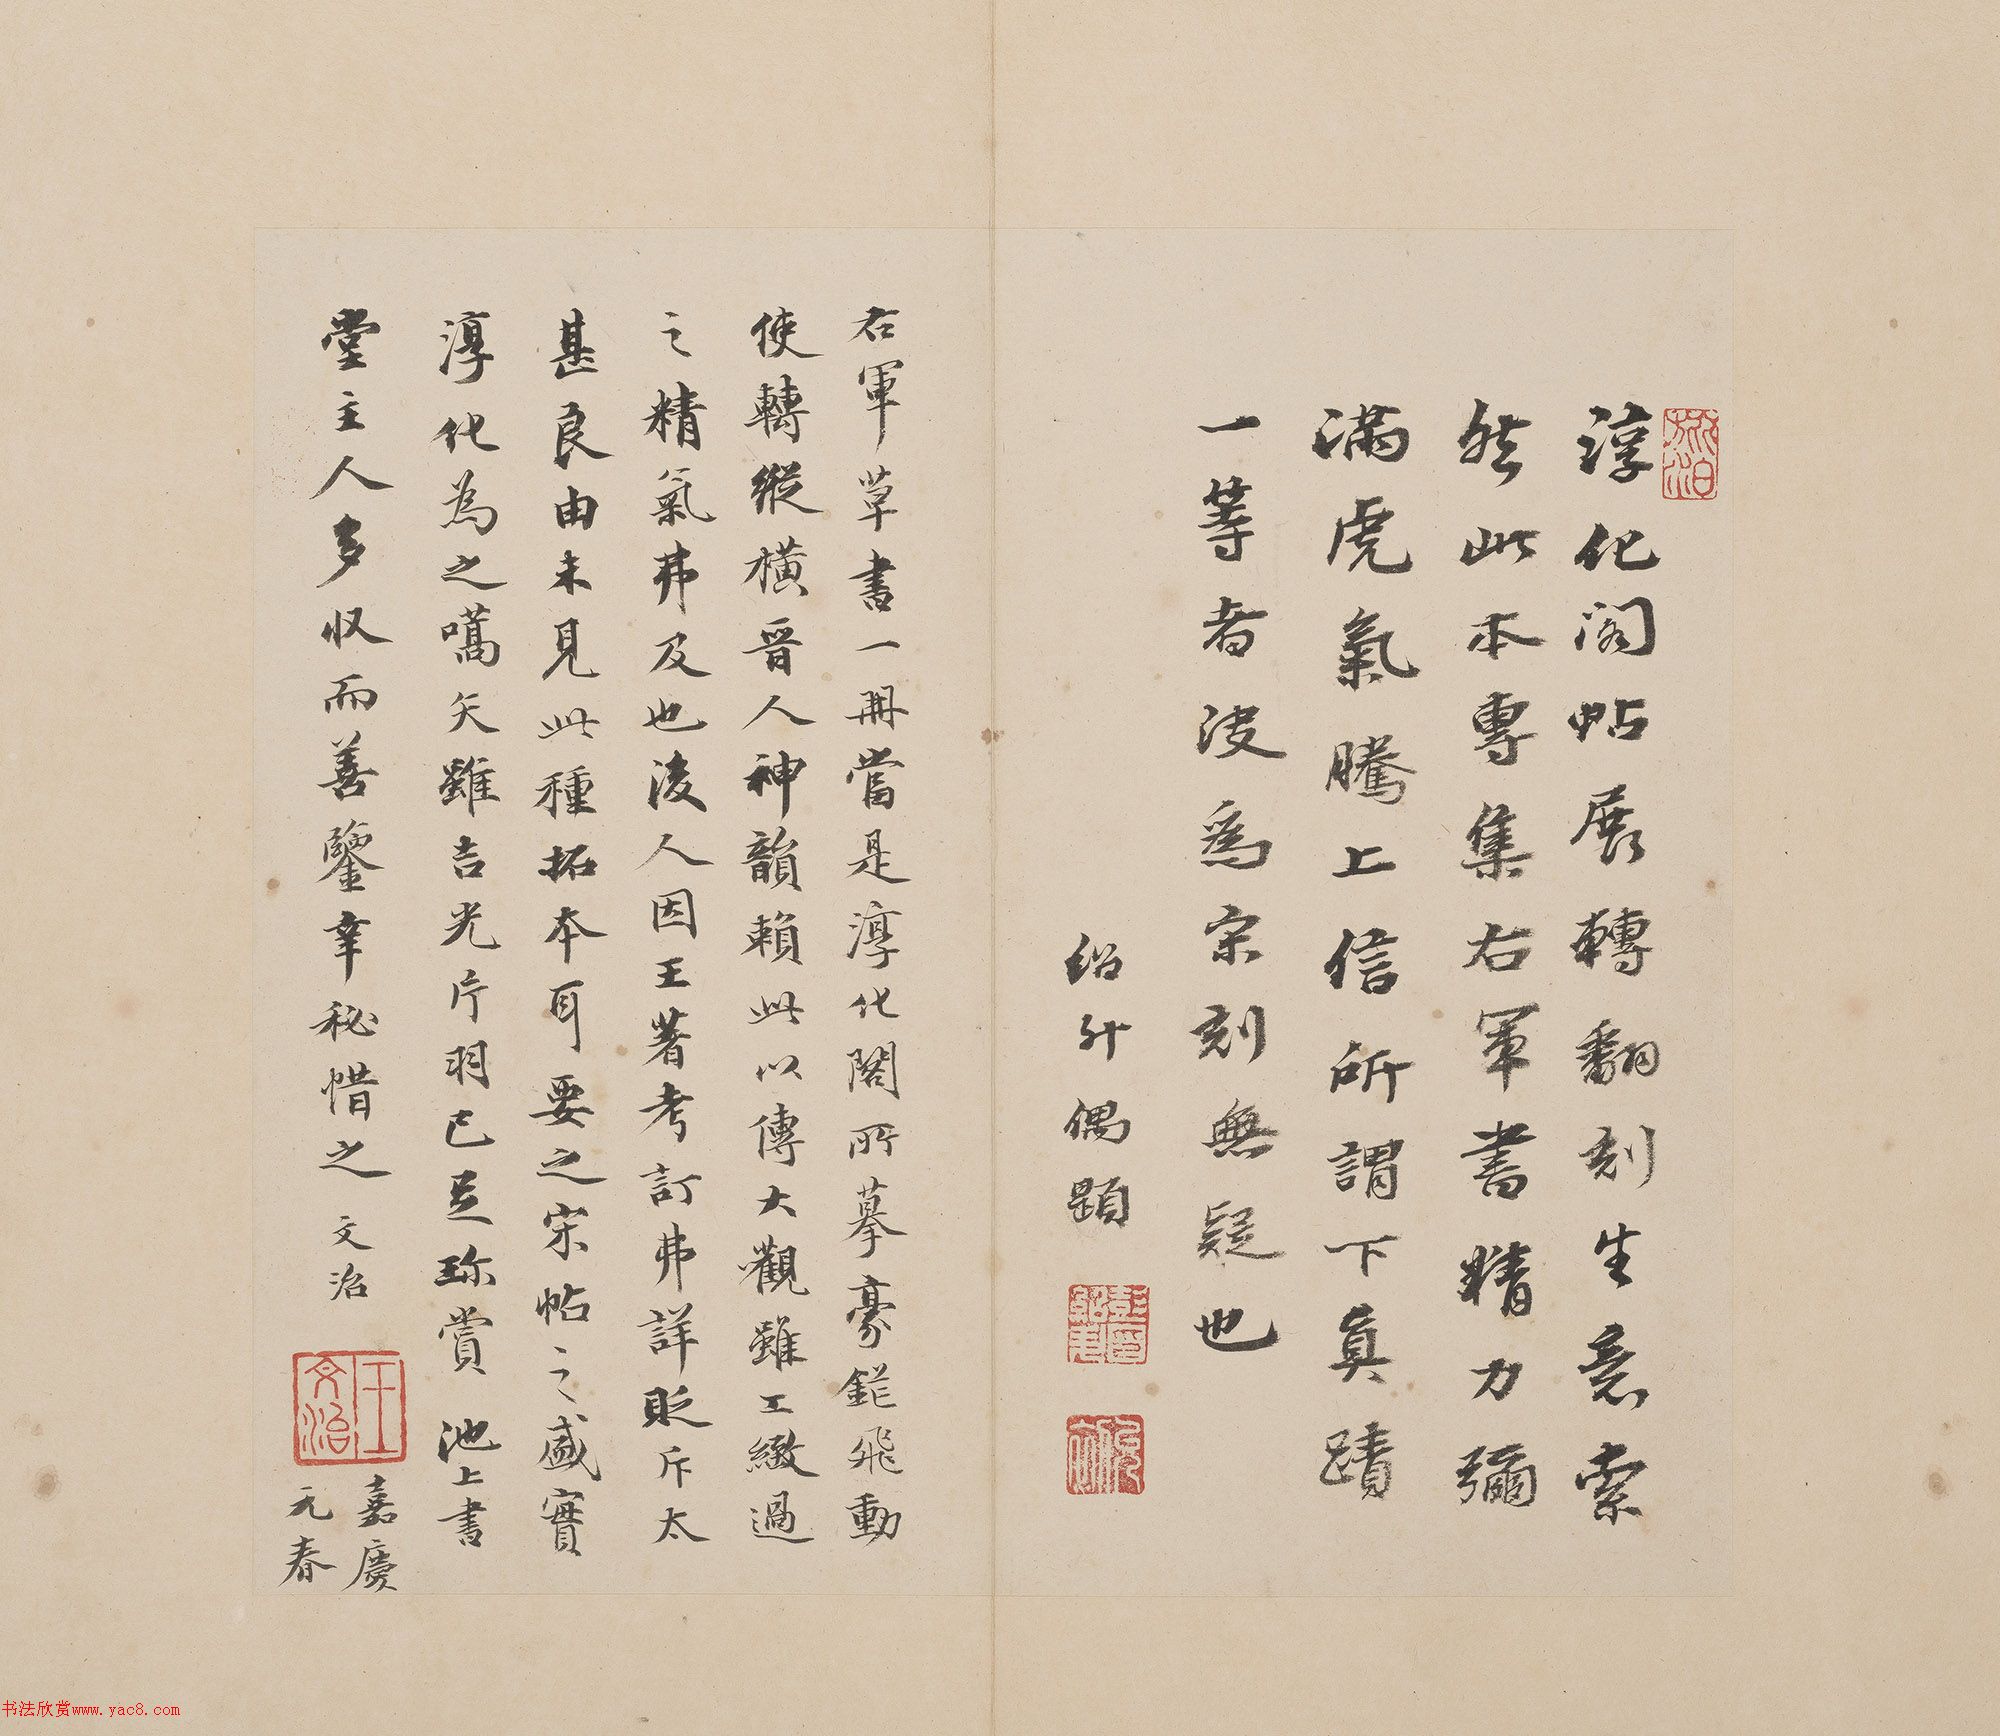 淳化閣帖展轉翻刻生意索
然此本專集右軍書精力彌
滿虎氣騰上信所謂下真蹟
一等者決為宋刻無疑也
紹升偶題
彭紹升印
右軍草書一冊當是淳化閣所摹豪鋩飛動
使轉縱橫晉人神韻賴此以傳大觀雖工緻過
之精氣弗及也後人因王著考訂弗詳貶斥太
甚良由未見此種拓本耳要之宋帖之盛實
淳化為之嚆矢雖吉光片羽已足珍賞池上書
堂主人多收而善鑒幸秘惜之 文治
王文治
嘉慶
元春
书法欣赏www.yac8.com